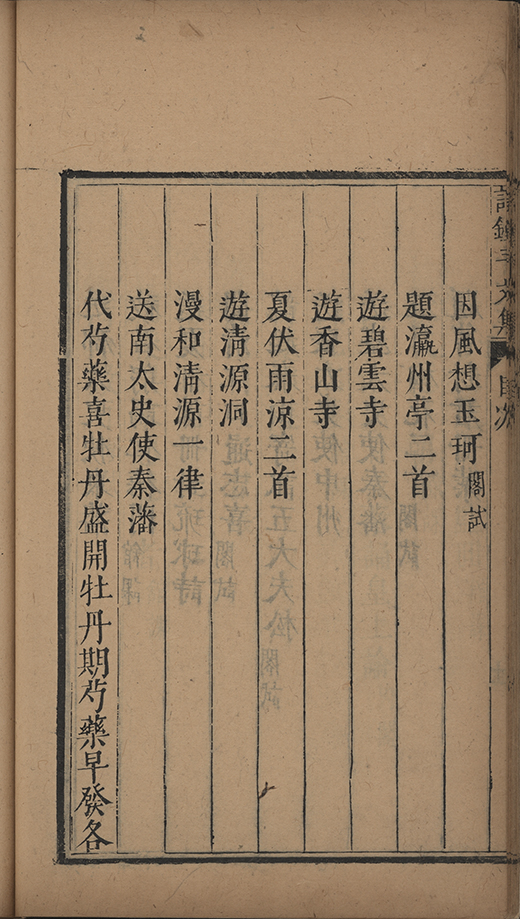 因風想玉珂 閣試
題瀛州亭二首
遊碧雲寺
遊香山寺
夏伏雨涼二首
遊清源洞
漫和清源一律
送南太史使秦藩
代芍藥喜牡丹盛開牡丹期芍藥早發各